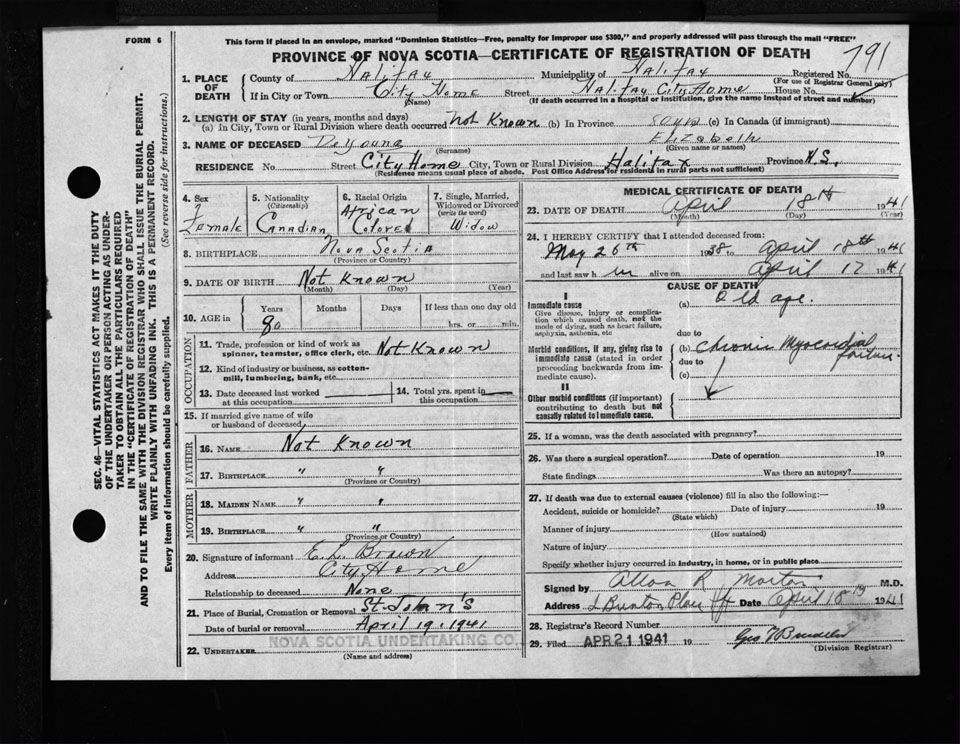 FORM 6
This form if placed in an envelope, marked "Dominion Statistics—Free, penalty for improper use $300," and properly addressed will pass through the mail "FREE"
PROVINCE OF NOVA SCOTIA—CERTIFICATE OF REGISTRATION OF DEATH
791
1. PLACE OF DEATH
County of Halifax Municipality of Halifax Registered No.
(For use of Registrar General only)
If in City or Town City Home Street Halifax City Home House No.
(Name) (If death occurred in a hospital or institution, give the name instead of street and number)
2. LENGTH OF STAY (in years, months and days)
(a) In City, Town or Rural Division where death occurred Not Known (b) In Province 80 yrs (c) In Canada (if immigrant)
3. NAME OF DECEASED DeYoung Elizabeth
(Surname) (Given name or names)
RESIDENCE No. Street City Home City, Town or Rural Division Halifax Province N.S.
(Residence means usual place of abode. Post Office Address for residents in rural parts not sufficient)
4. Sex
Female
5. Nationality
(Citizenship)
Canadian
6. Racial Origin
African
Colored
7. Single, Married,
Widowed or Divorced
(write the word)
Widow
8. BIRTHPLACE Nova Scotia
(Province or Country)
9. DATE OF BIRTH Not Known
(Month) (Day) (Year)
10. AGE in
Years Months Days If less than one day old
80 hrs. or min.
OCCUPATION
11. Trade, profession or kind of work as
spinner, teamster, office clerk, etc. Not Known
12. Kind of industry or business, as cotton-
mill, lumbering, bank, etc.
13. Date deceased last worked
at this occupation
14. Total yrs. spent in
this occupation
15. If married give name of wife
or husband of deceased
FATHER
16. NAME Not Known
17. BIRTHPLACE " "
(Province or Country)
MOTHER
18. MAIDEN NAME " "
19. BIRTHPLACE " "
(Province or Country)
20. Signature of informant E. L. Brown
Address City Home
Relationship to deceased None
21. Place of Burial, Cremation or Removal St. John's
Date of burial or removal April 19, 1941
NOVA SCOTIA UNDERTAKING CO.
22. UNDERTAKER
(Name and address)
MEDICAL CERTIFICATE OF DEATH
23. DATE OF DEATH April 18th 1941
(Month) (Day) (Year)
24. I HEREBY CERTIFY that I attended deceased from:
May 26th 1938 to April 18th 1941
and last saw h alive on April 17 1941
CAUSE OF DEATH
I
Immediate cause
Give disease, injury or complica-
tion which caused death, not the
mode of dying, such as heart failure,
asphyxia, asthenia, etc
(a) Old age.
due to
Morbid conditions, if any, giving rise to
immediate cause (stated in order
proceeding backwards from im-
mediate cause).
(b) Chronic Myocardial failure.
due to
(c)
II
Other morbid conditions (if important)
contributing to death but not
causally related to immediate cause.
25. If a woman, was the death associated with pregnancy?
26. Was there a surgical operation? Date of operation 19
State findings Was there an autopsy?
27. If death was due to external causes (violence) fill in also the following:—
Accident, suicide or homicide? Date of injury 19
(State which)
Manner of injury
(How sustained)
Nature of injury
Specify whether injury occurred in industry, in home, or in public place
Signed by Allan R Morton M.D.
Address Date April 18th 1941
28. Registrar's Record Number
29. Filed APR 21 1941 19
(Division Registrar)
SEC. 46—VITAL STATISTICS ACT MAKES IT THE DUTY
OF THE UNDERTAKER OR PERSON ACTING AS UNDER-
TAKER TO OBTAIN ALL THE PARTICULARS REQUIRED
IN THE "CERTIFICATE OF REGISTRATION OF DEATH"
AND TO FILE THE SAME WITH THE DIVISION REGISTRAR WHO SHALL ISSUE THE BURIAL PERMIT.
WRITE PLAINLY WITH UNFADING INK. THIS IS A PERMANENT RECORD.
Every item of information should be carefully supplied. (See reverse side for instructions.)